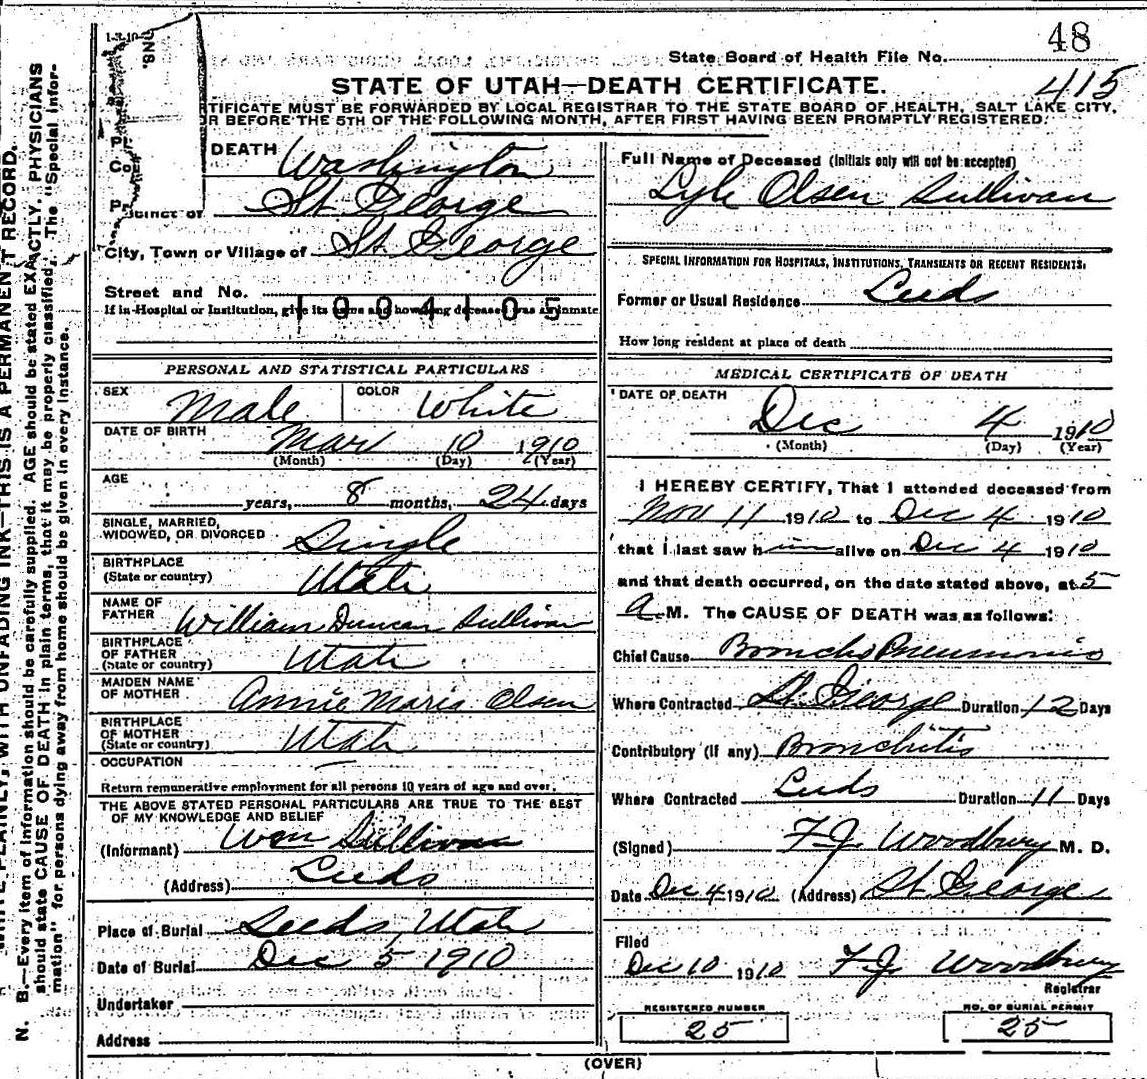 48
State Board of Health File No.
415
STATE OF UTAH—DEATH CERTIFICATE.
RTIFICATE MUST BE FORWARDED BY LOCAL REGISTRAR TO THE STATE BOARD OF HEALTH, SALT LAKE CITY,
OR BEFORE THE 5TH OF THE FOLLOWING MONTH, AFTER FIRST HAVING BEEN PROMPTLY REGISTERED.
DEATH Washington
St George
City, Town or Village of St. George
Street and No.
If in Hospital or Institution, give its name and how long deceased was an inmate
004105
PERSONAL AND STATISTICAL PARTICULARS
SEX Male COLOR White
DATE OF BIRTH Mar 10 1910
(Month) (Day) (Year)
AGE
years, 8 months, 24 days
SINGLE, MARRIED,
WIDOWED, OR DIVORCED Single
BIRTHPLACE
(State or country) Utah
NAME OF
FATHER William Duncan Sullivan
BIRTHPLACE
OF FATHER
(State or country) Utah
MAIDEN NAME
OF MOTHER Annie Maria Olsen
BIRTHPLACE
OF MOTHER
(State or country) Utah
OCCUPATION —
Return remunerative employment for all persons 10 years of age and over.
THE ABOVE STATED PERSONAL PARTICULARS ARE TRUE TO THE BEST
OF MY KNOWLEDGE AND BELIEF
(Informant) Wm Sullivan
(Address) Leeds
Place of Burial Leeds, Utah
Date of Burial Dec 5 1910
Undertaker
Address
Full Name of Deceased (Initials only will not be accepted)
Lyle Olsen Sullivan
SPECIAL INFORMATION FOR HOSPITALS, INSTITUTIONS, TRANSIENTS OR RECENT RESIDENTS.
Former or Usual Residence Leeds
How long resident at place of death
MEDICAL CERTIFICATE OF DEATH
DATE OF DEATH
Dec 4 1910
(Month) (Day) (Year)
I HEREBY CERTIFY, That I attended deceased from
Nov 11 1910 to Dec 4 1910
that I last saw him alive on Dec 4 1910
and that death occurred, on the date stated above, at 5
A. M. The CAUSE OF DEATH was as follows:
Chief Cause Broncho Pneumonia
Where Contracted St. George Duration 12 Days
Contributory (if any) Bronchitis
Where Contracted Leeds Duration 11 Days
(Signed) F.J. Woodbury M. D.
Date Dec 4 1910 (Address) St. George
Filed
Dec 10 1910 F.J. Woodbury
Registrar
REGISTERED NUMBER
25
NO. OF BURIAL PERMIT
25
(OVER)
WRITE PLAINLY, WITH UNFADING INK—THIS IS A PERMANENT RECORD.
N. B.—Every item of information should be carefully supplied. AGE should be stated EXACTLY. PHYSICIANS
should state CAUSE OF DEATH in plain terms, that it may be properly classified. The "Special Infor-
mation" for persons dying away from home should be given in every instance.